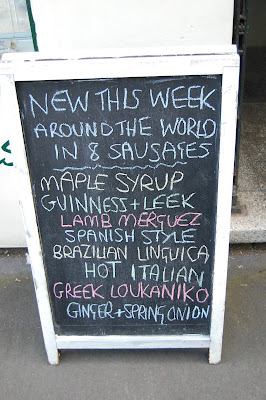 NEW THIS WEEK
AROUND THE WORLD
IN 8 SAUSAGES
MAPLE SYRUP
GUINNESS + LEEK
LAMB MERGUEZ
SPANISH STYLE
BRAZILIAN LINGUICA
HOT ITALIAN
GREEK LOUKANIKO
GINGER + SPRING ONION